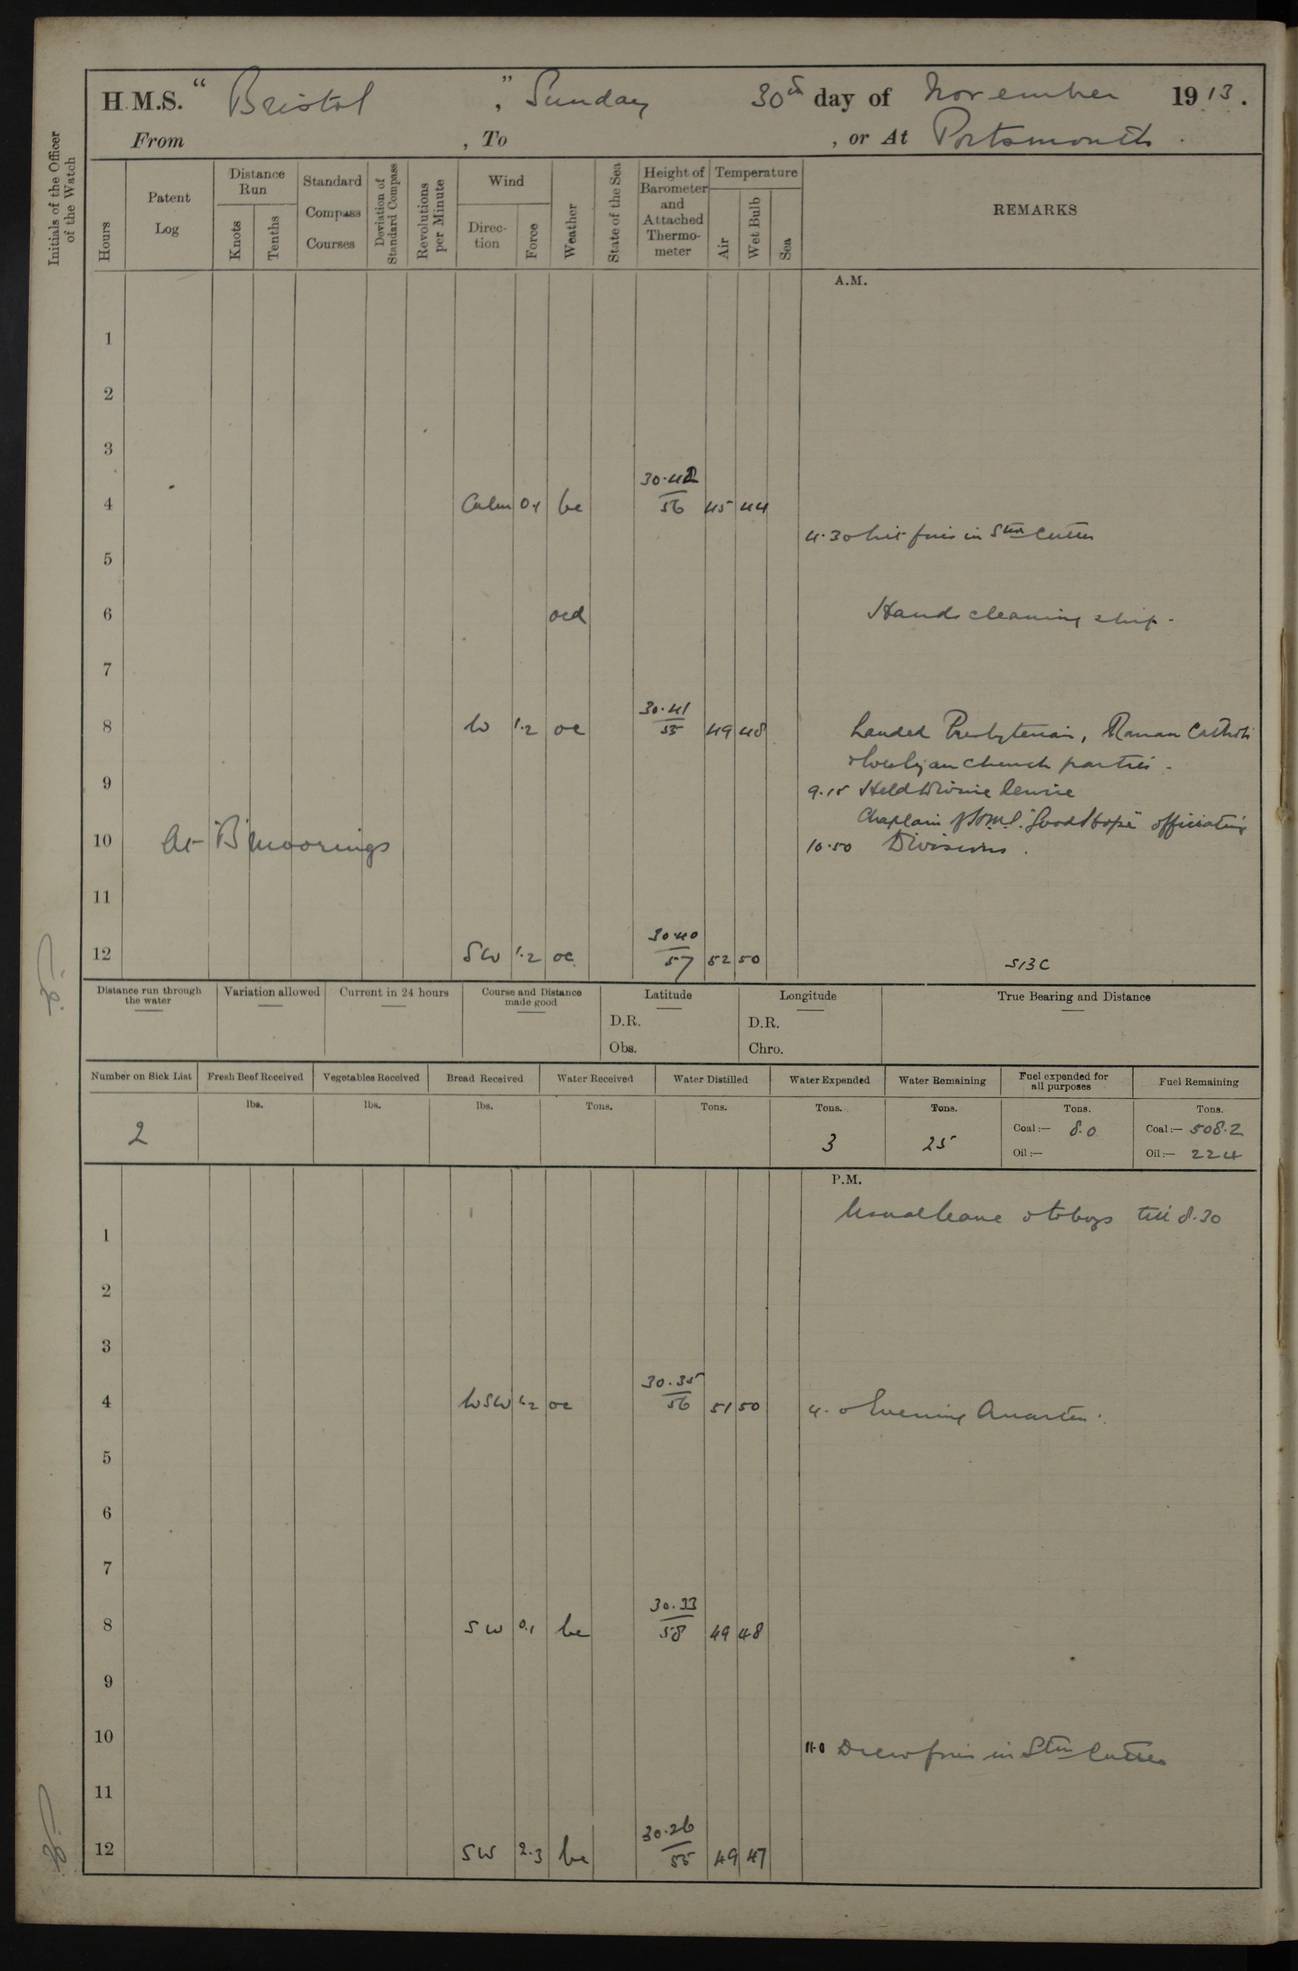 H.M.S. " Bristol ", Sunday 30th day of November 1913.
From , To , or At Portsmouth.
Initials of the Officer of the Watch
Hours
Patent Log
Distance Run
Knots
Tenths
Standard Compass Courses
Deviation of Standard Compass
Revolutions per Minute
Wind
Direction
Force
Weather
State of the Sea
Height of Barometer and Attached Thermometer
Temperature
Air
Wet Bulb
Sea
REMARKS
A.M.
1
2
3
4 Calm 0.1 bc 30.42/56 45 44
4.30 Lit fires in Stm Cutter
5
6 ocd Hands cleaning ship.
7
8 W 1.2 oc 30.41/55 49 48 Landed Presbyterian, Roman Catholic
& Wesleyan church parties.
9
9.15 Held Divine Service
Chaplain of H.M.S. "Good Hope" officiating
10 At "B" moorings 10.50 Divisions.
11
12 SW 1.2 oc 30.40/57 52 50 S13C
Distance run through the water
Variation allowed
Current in 24 hours
Course and Distance made good
Latitude
D.R.
Obs.
Longitude
D.R.
Chro.
True Bearing and Distance
Number on Sick List
Fresh Beef Received
Vegetables Received
Bread Received
Water Received
Water Distilled
Water Expended
Water Remaining
Fuel expended for all purposes
Fuel Remaining
lbs. lbs. lbs. Tons. Tons. Tons. Tons. Tons. Tons.
2 3 25 Coal:— 8.0 Coal:— 508.2
Oil:— Oil:— 224
P.M.
Usual leave & to boys till 8.30
1
2
3
4 WSW 1.2 oc 30.35/56 51 50 4.0 Evening Quarters.
5
6
7
8 SW 0.1 bc 30.33/58 49 48
9
10 11.0 Drew fires in Stm Cutter
11
12 SW 2.3 bc 30.26/55 49 47